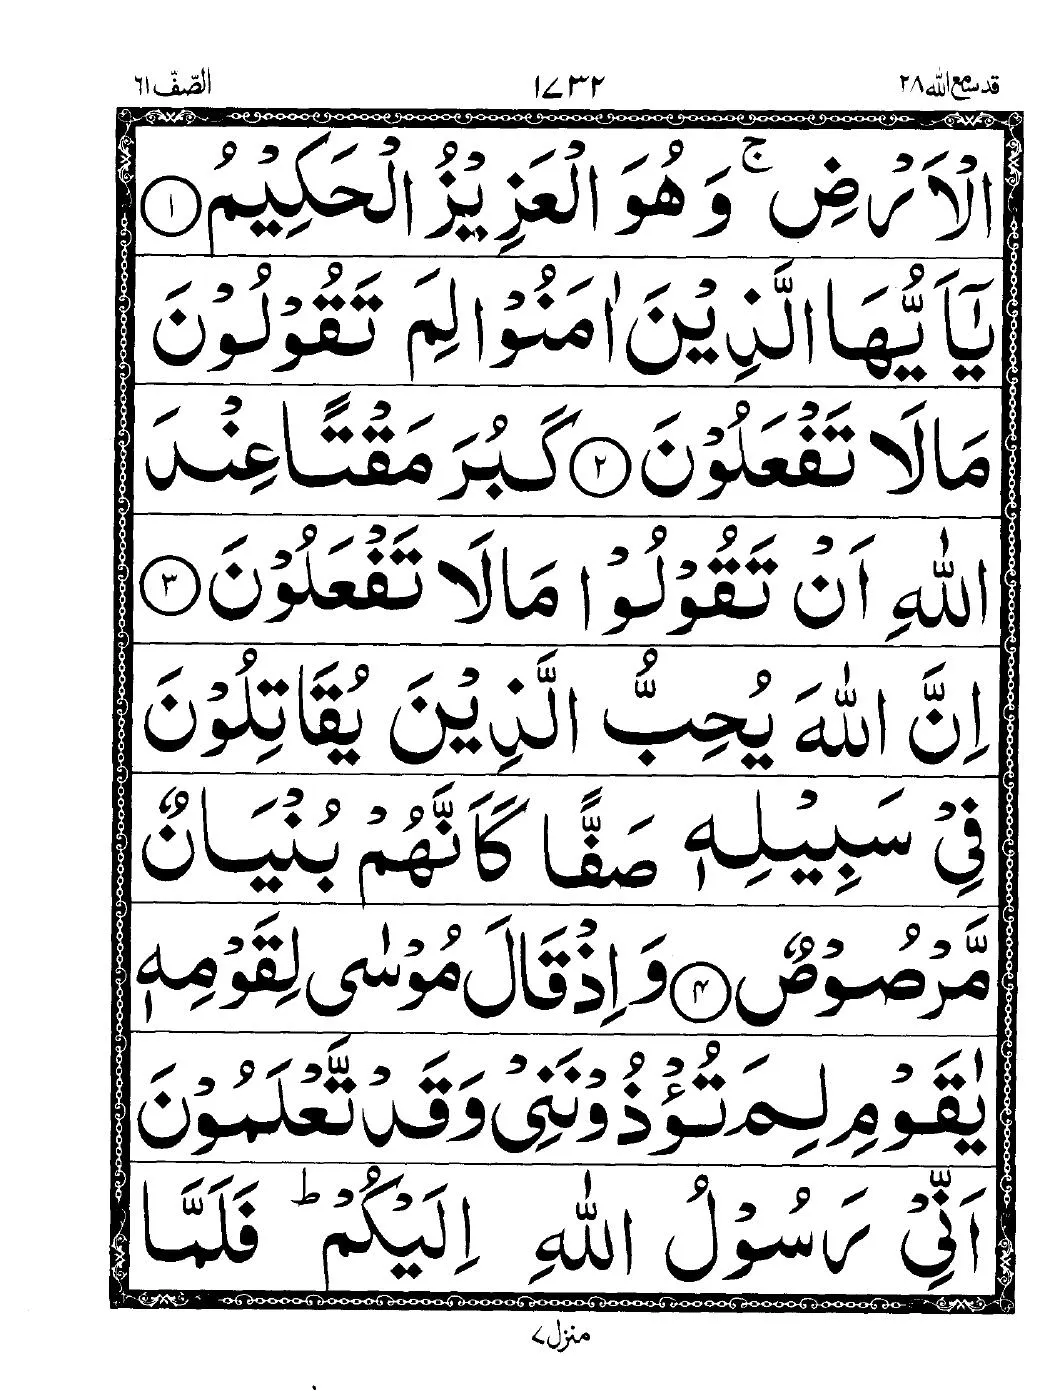 قد سمع الله ٢٨ ١٧٣٢ الصّفّ ٦١
الْاَرْضِ ۚ وَهُوَ الْعَزِيْزُ الْحَكِيْمُ ١
يٰۤاَيُّهَا الَّذِيْنَ اٰمَنُوْا لِمَ تَقُوْلُوْنَ
مَا لَا تَفْعَلُوْنَ ٢ كَبُرَ مَقْتًا عِنْدَ
اللّٰهِ اَنْ تَقُوْلُوْا مَا لَا تَفْعَلُوْنَ ٣
اِنَّ اللّٰهَ يُحِبُّ الَّذِيْنَ يُقَاتِلُوْنَ
فِيْ سَبِيْلِهٖ صَفًّا كَاَنَّهُمْ بُنْيَانٌ
مَّرْصُوْصٌ ٤ وَاِذْ قَالَ مُوْسٰى لِقَوْمِهٖ
يٰقَوْمِ لِمَ تُؤْذُوْنَنِيْ وَقَدْ تَّعْلَمُوْنَ
اَنِّيْ رَسُوْلُ اللّٰهِ اِلَيْكُمْ ؕ فَلَمَّا
منزل ٧